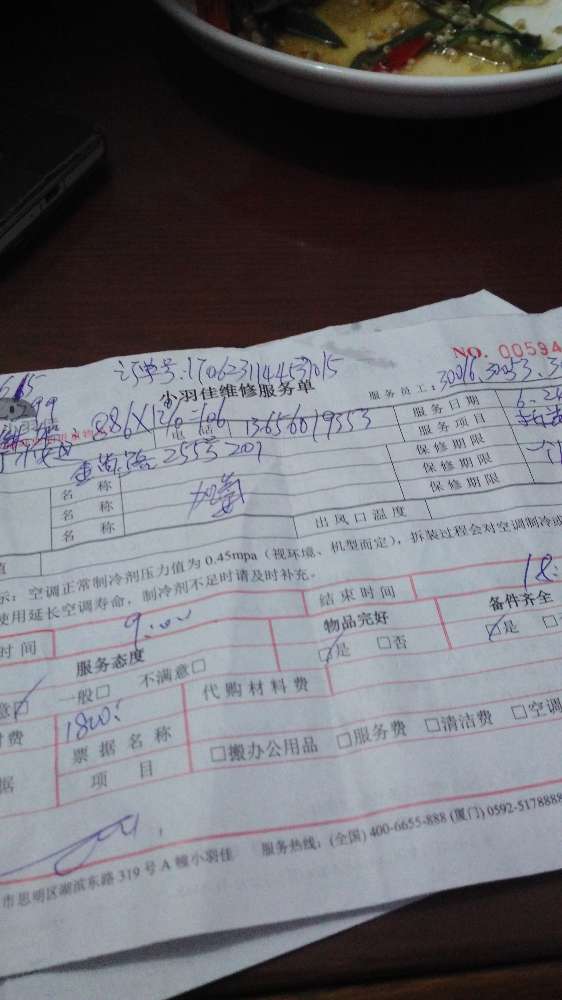 订单号:170623114453015
NO. 00594
小羽佳维修服务单
服务员工:30016.30053.3
886X120=106
电 话
13656019353
服务日期
6.2
服务项目
2553 209
保修期限
名 称
保修期限
名 称
保修期限
名 称
出风口温度
示:空调正常制冷剂压力值为 0.45mpa(视环境、机型而定),拆装过程会对空调制冷或
使用延长空调寿命,制冷剂不足时请及时补充。
时 间
9:00
结束时间
18:
服务态度
物品完好
备件齐全
意☑ 一般□ 不满意□
☑是 □否
☑是
付费
1800:
代购材料费
据
票 据 名 称
项 目
□搬办公用品 □服务费 □清洁费 □空调
市思明区湖滨东路 319 号 A 幢小羽佳 服务热线:(全国) 400-6655-888 (厦门) 0592-5178888